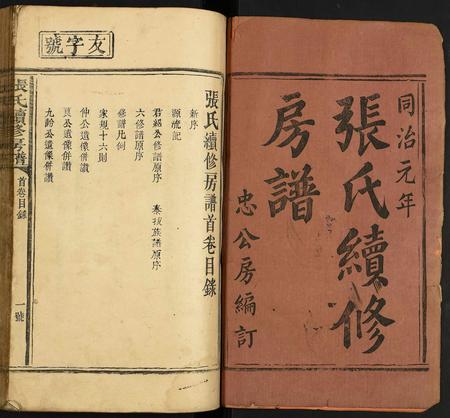 同治元年
張氏續修
房譜
忠公房編訂
友字號
張氏續修房譜首卷目錄
新序
源流記
君紹公修譜原序 泰拔族譜原序
六修譜原序
修譜凡例
家規十六則
仲公遺像併讚
良公遺像併讚
九齡公遺像併讚
張氏續修房譜
首卷目錄
一號